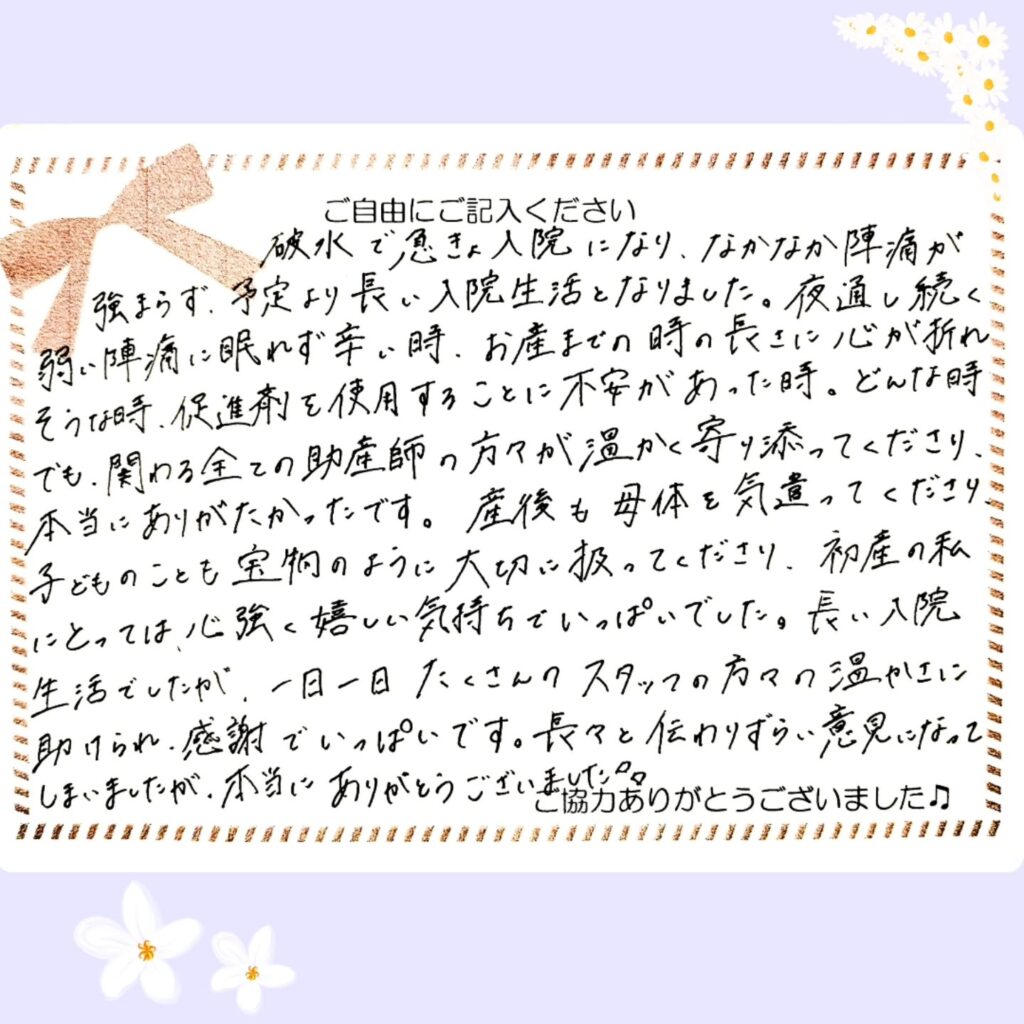 ご自由にご記入ください
破水で急きょ入院になり、なかなか陣痛が
強まらず、予定より長い入院生活となりました。夜通し続く
弱い陣痛に眠れず辛い時、お産までの時の長さに心が折れ
そうな時、促進剤を使用することに不安があった時。どんな時
でも、関わる全ての助産師の方々が温かく寄り添ってくださり、
本当にありがたかったです。産後も母体を気遣ってくださり、
子どものことも宝物のように大切に扱ってくださり、初産の私
にとっては、心強く嬉しい気持ちでいっぱいでした。長い入院
生活でしたが、一日一日たくさんのスタッフの方々の温かさに
助けられ、感謝でいっぱいです。長々と伝わりずらい意見になって
しまいましたが、本当にありがとうございました
ご協力ありがとうございました♫